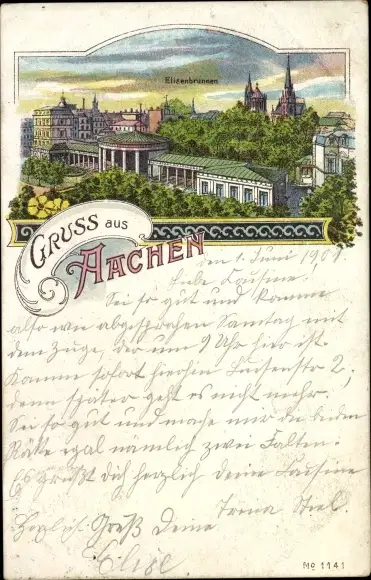 Elisenbrunnen
Gruss aus
Aachen
den 1. Juni 1901.
Liebe Cousine.
Sei so gut und komme
also wie abgesprochen Samstag mit
dem Zuge, der um 9 Uhr hier ist.
Komm sofort hierhin 2;
denn später geht es nicht mehr.
Sei so gut und mache mir die beiden
egal nämlich zwei Falten.
Es grüßt dich herzlich deine Cousine
Trina
Herzlich. Gruß Deine
Elise
No 1141